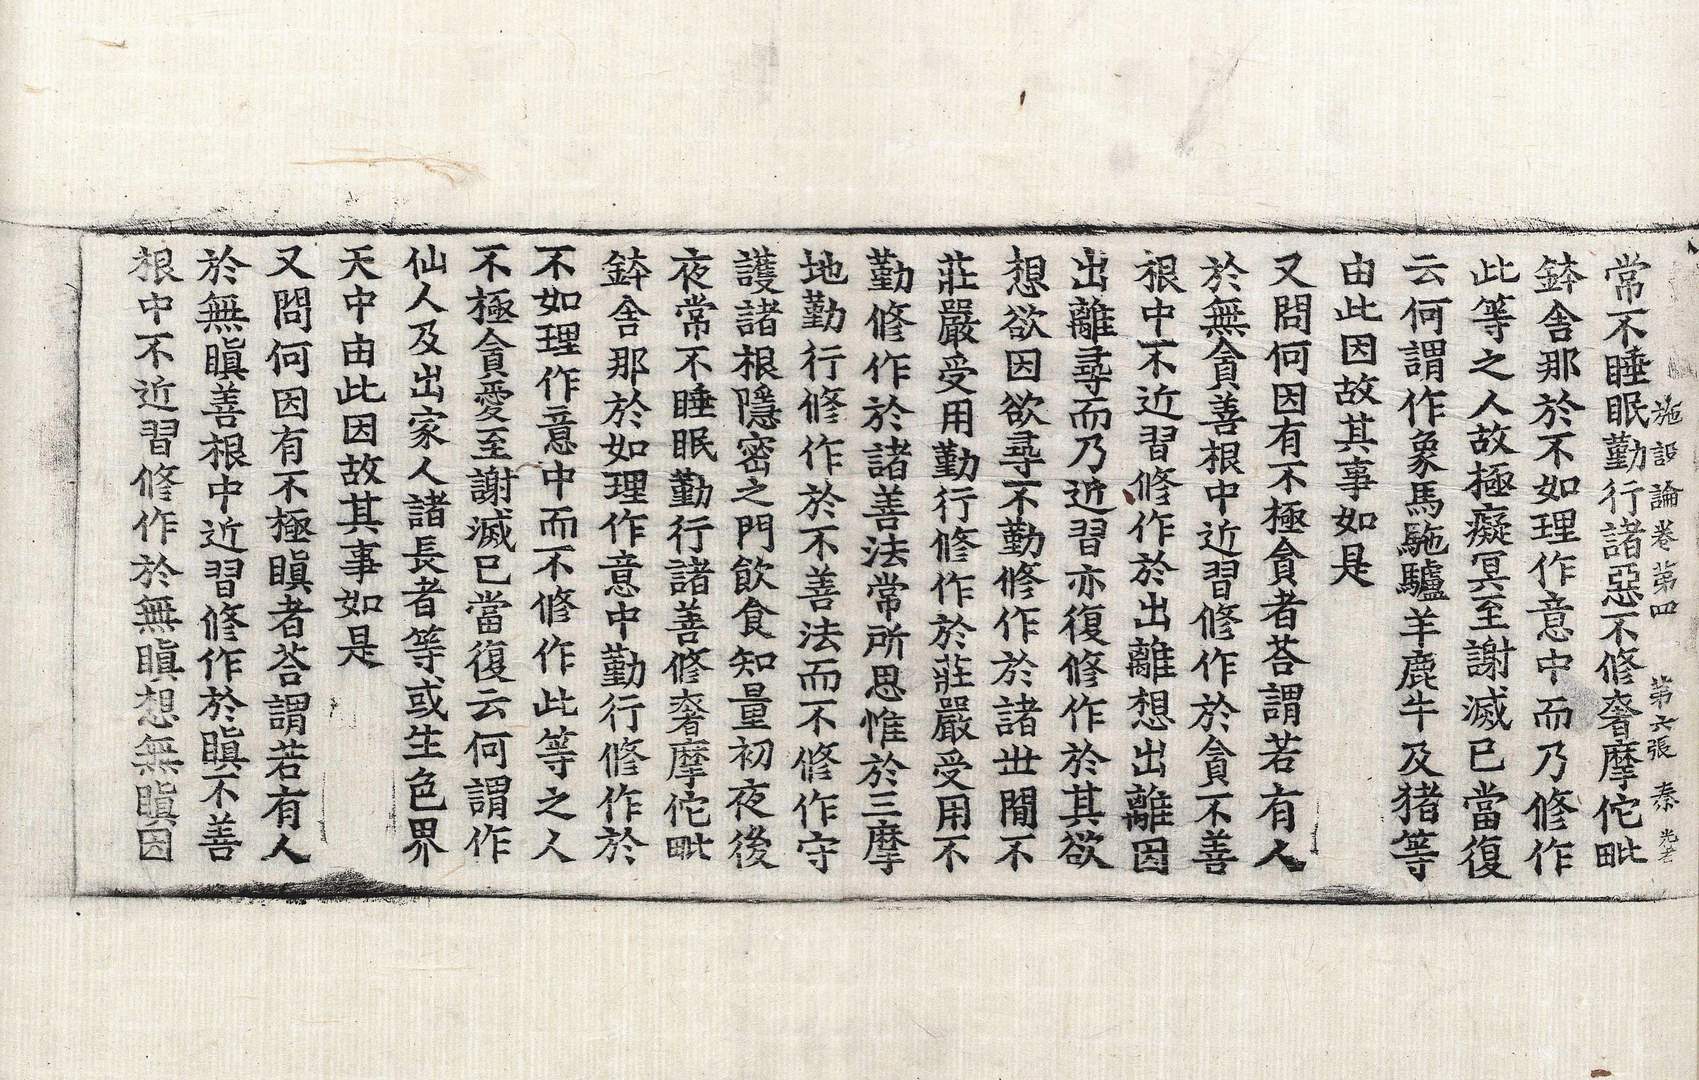 施設論卷第四　第六張　秦
常不睡眠勤行諸惡不修奢摩佗毗
鉢舍那於不如理作意中而乃修作
此等之人故極癡冥至謝滅已當復
云何謂作象馬駞驢羊鹿牛及猪等
由此因故其事如是
又問何因有不極貪者荅謂若有人
於無貪善根中近習修作於貪不善
根中不近習修作於出離想出離因
出離尋而乃近習亦復修作於其欲
想欲因欲尋不勤修作於諸世閒不
莊嚴受用勤行修作於莊嚴受用不
勤修作於諸善法常所思惟於三摩
地勤行修作於不善法而不修作守
護諸根隱密之門飲食知量初夜後
夜常不睡眠勤行諸善修奢摩佗毗
鉢舍那於如理作意中勤行修作於
不如理作意中而不修作此等之人
不極貪愛至謝滅已當復云何謂作
仙人及出家人諸長者等或生色界
天中由此因故其事如是
又問何因有不極瞋者荅謂若有人
於無瞋善根中近習修作於瞋不善
根中不近習修作於無瞋想無瞋因